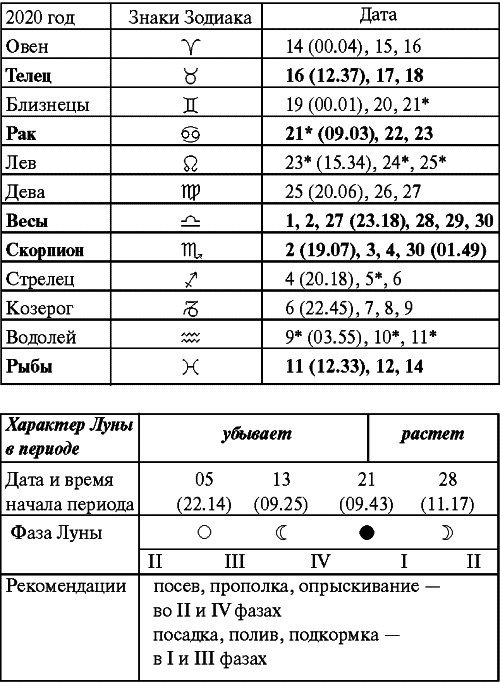 2020 год Знаки Зодиака Дата
Овен ♈ 14 (00.04), 15, 16
Телец ♉ 16 (12.37), 17, 18
Близнецы ♊ 19 (00.01), 20, 21*
Рак ♋ 21* (09.03), 22, 23
Лев ♌ 23* (15.34), 24*, 25*
Дева ♍ 25 (20.06), 26, 27
Весы ♎ 1, 2, 27 (23.18), 28, 29, 30
Скорпион ♏ 2 (19.07), 3, 4, 30 (01.49)
Стрелец ♐ 4 (20.18), 5*, 6
Козерог ♑ 6 (22.45), 7, 8, 9
Водолей ♒ 9* (03.55), 10*, 11*
Рыбы ♓ 11 (12.33), 12, 14
Характер Луны убывает растет
в периоде
Дата и время 05 13 21 28
начала периода (22.14) (09.25) (09.43) (11.17)
Фаза Луны ○ ☾ ● ☽
II III IV I II
Рекомендации посев, прополка, опрыскивание —
во II и IV фазах
посадка, полив, подкормка —
в I и III фазах